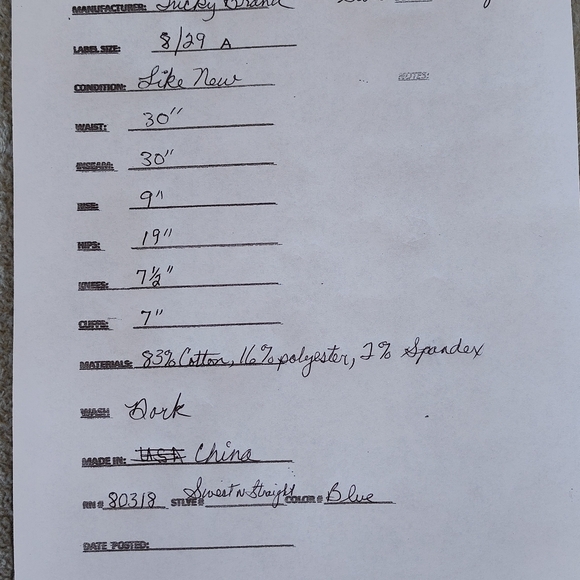 MANUFACTURER: Lucky Brand
LABEL SIZE: 8/29 A
CONDITION: Like New
NOTES:
WAIST: 30"
INSEAM: 30"
RISE: 9"
HIPS: 19"
KNEES: 7½"
CUFFS: 7"
MATERIALS: 83% Cotton, 16% polyester, 2% Spandex
WASH Dark
MADE IN: USA China
RN # 80318 STLYE # Sweet n Straight COLOR # Blue
DATE POSTED: